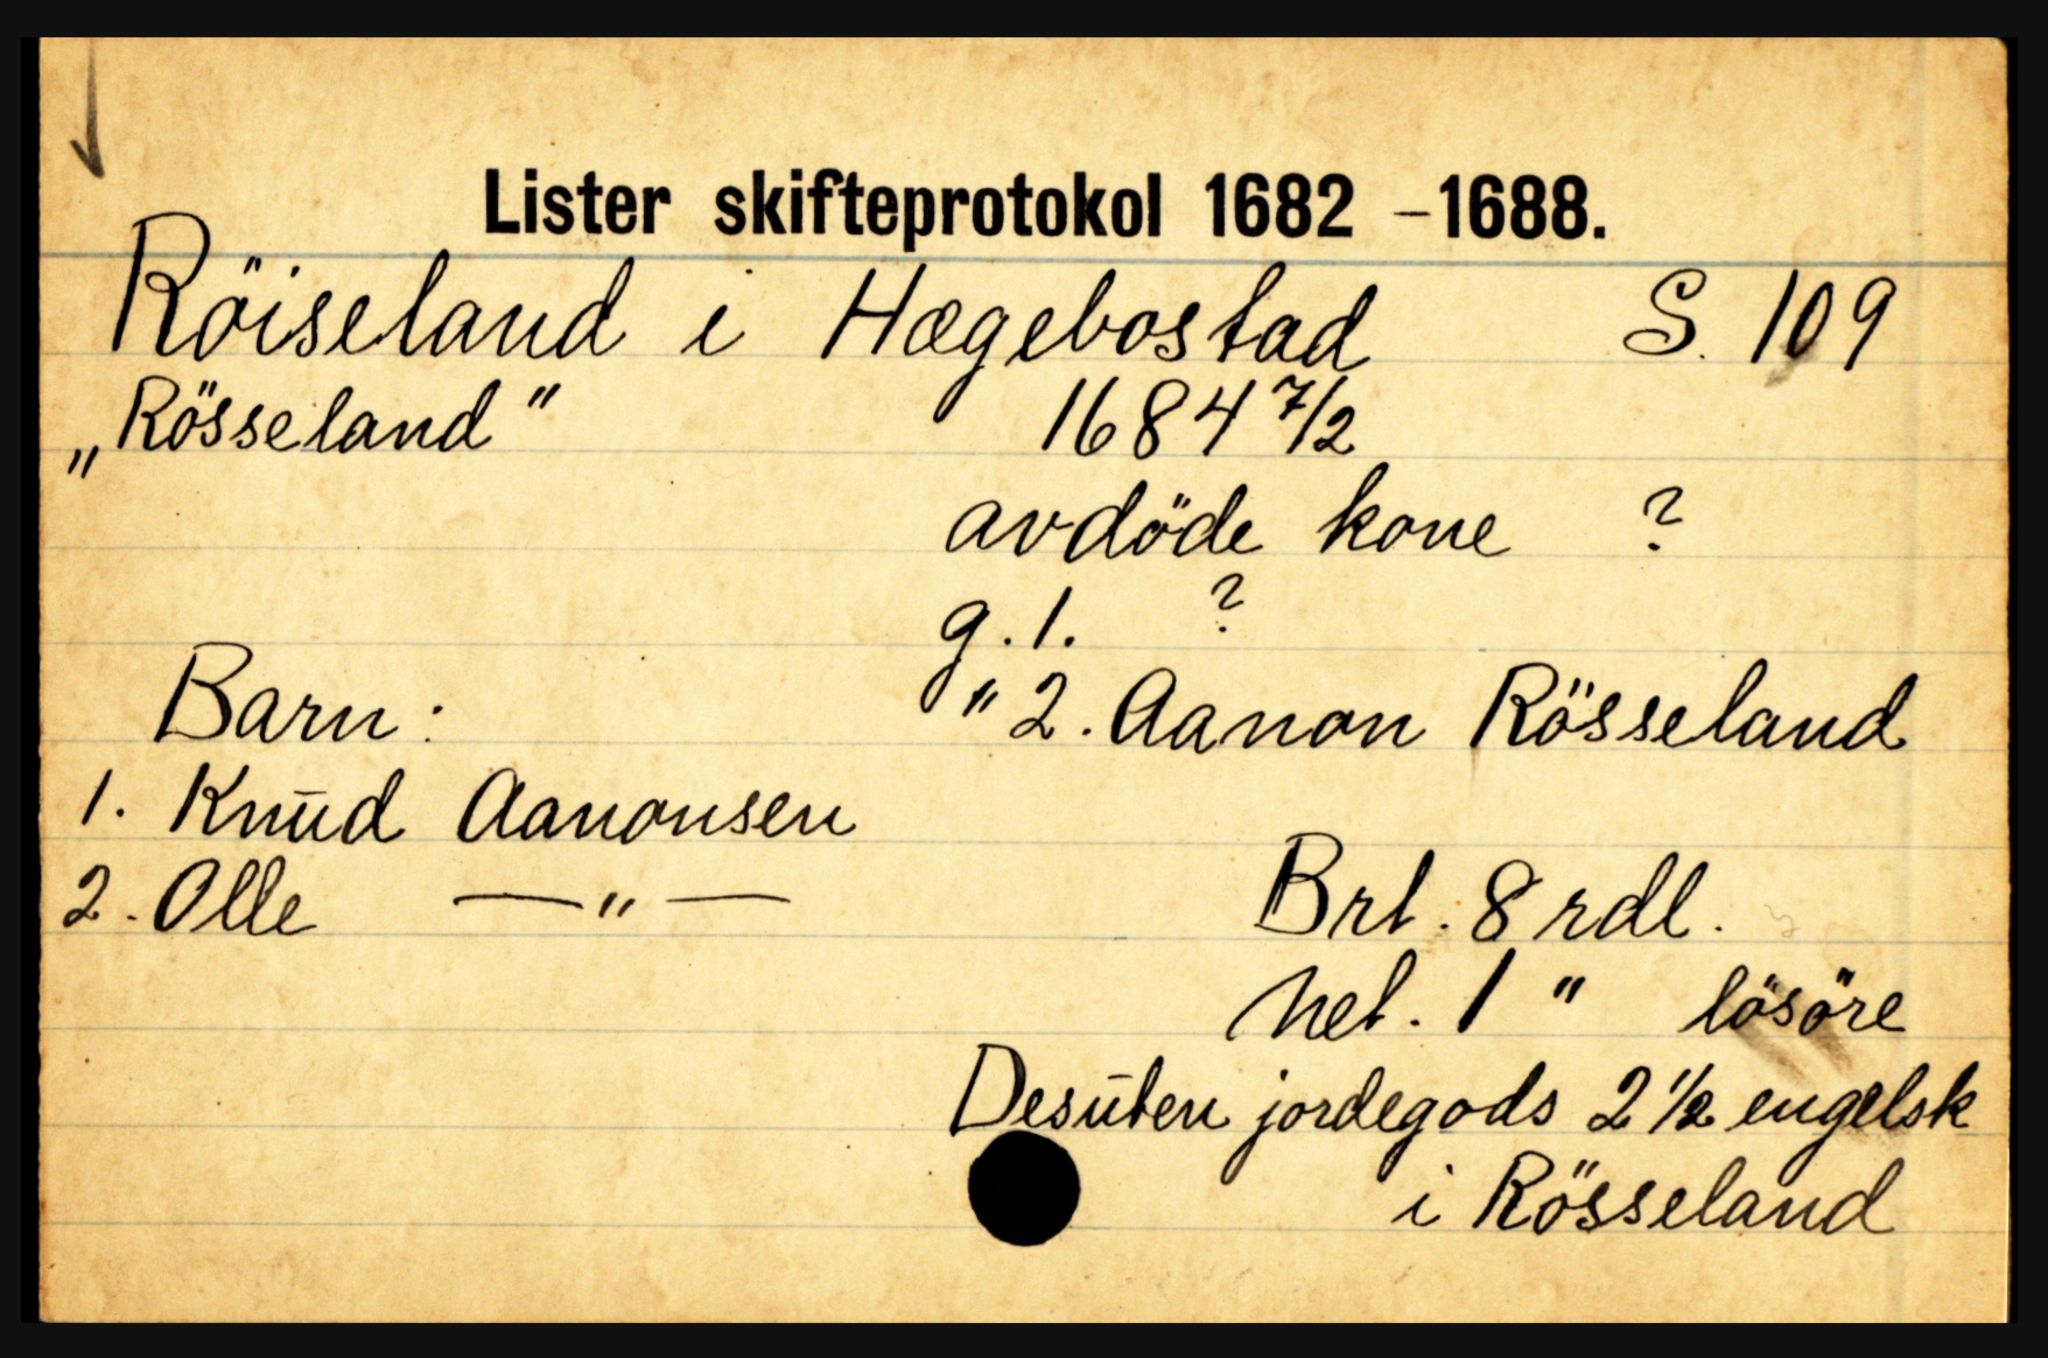 Lister skifteprotokol 1682 - 1688.
Röiseland i Hægebostad S. 109
„Rösseland" 1684 7/2
avdöde kone ?
g. 1. ?
Barn: " 2. Aanon Rösseland
1. Knūd Aanonsen
2. Olle — " — Brt. 8 rdl.
Net. 1 " lösöre
Desūten jordegods 2 1/2 engelsk
i Rösseland